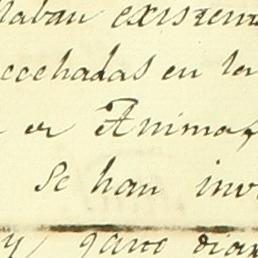 laban existen
cechadas en la
er Animas
Se han inv
y gano dia